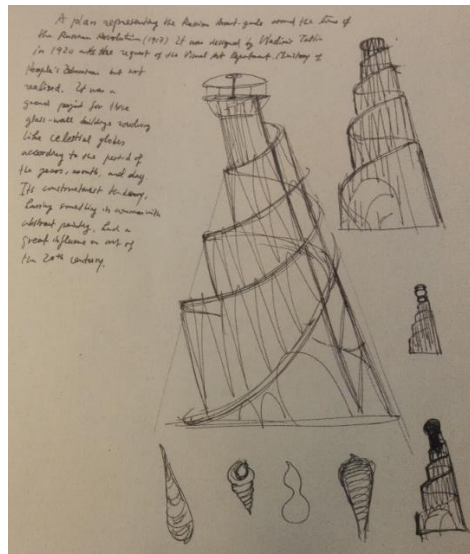 A plan representing the Russian Avant-garde around the time of
the Russian Revolution (1917). It was designed by Vladimir Tatlin
in 1920 at the request of the Visual Art Department, Ministry of
People's Education but not
realized. It was a
grand project for three
glass-wall buildings revolving
like celestial globes
according to the period of
the years, month, and day.
Its constructivist tendency,
having something in common with
abstract painting, had a
great influence on art of
the 20th century.